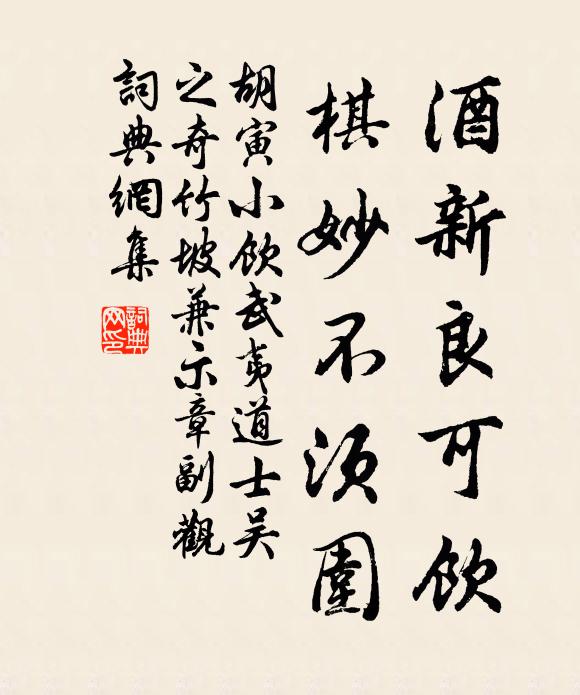 酒新良可飲
棋妙不須圍
胡寅小飲武夷道士吴
之奇竹坡兼示章副觀
詞典網集
詞典网印